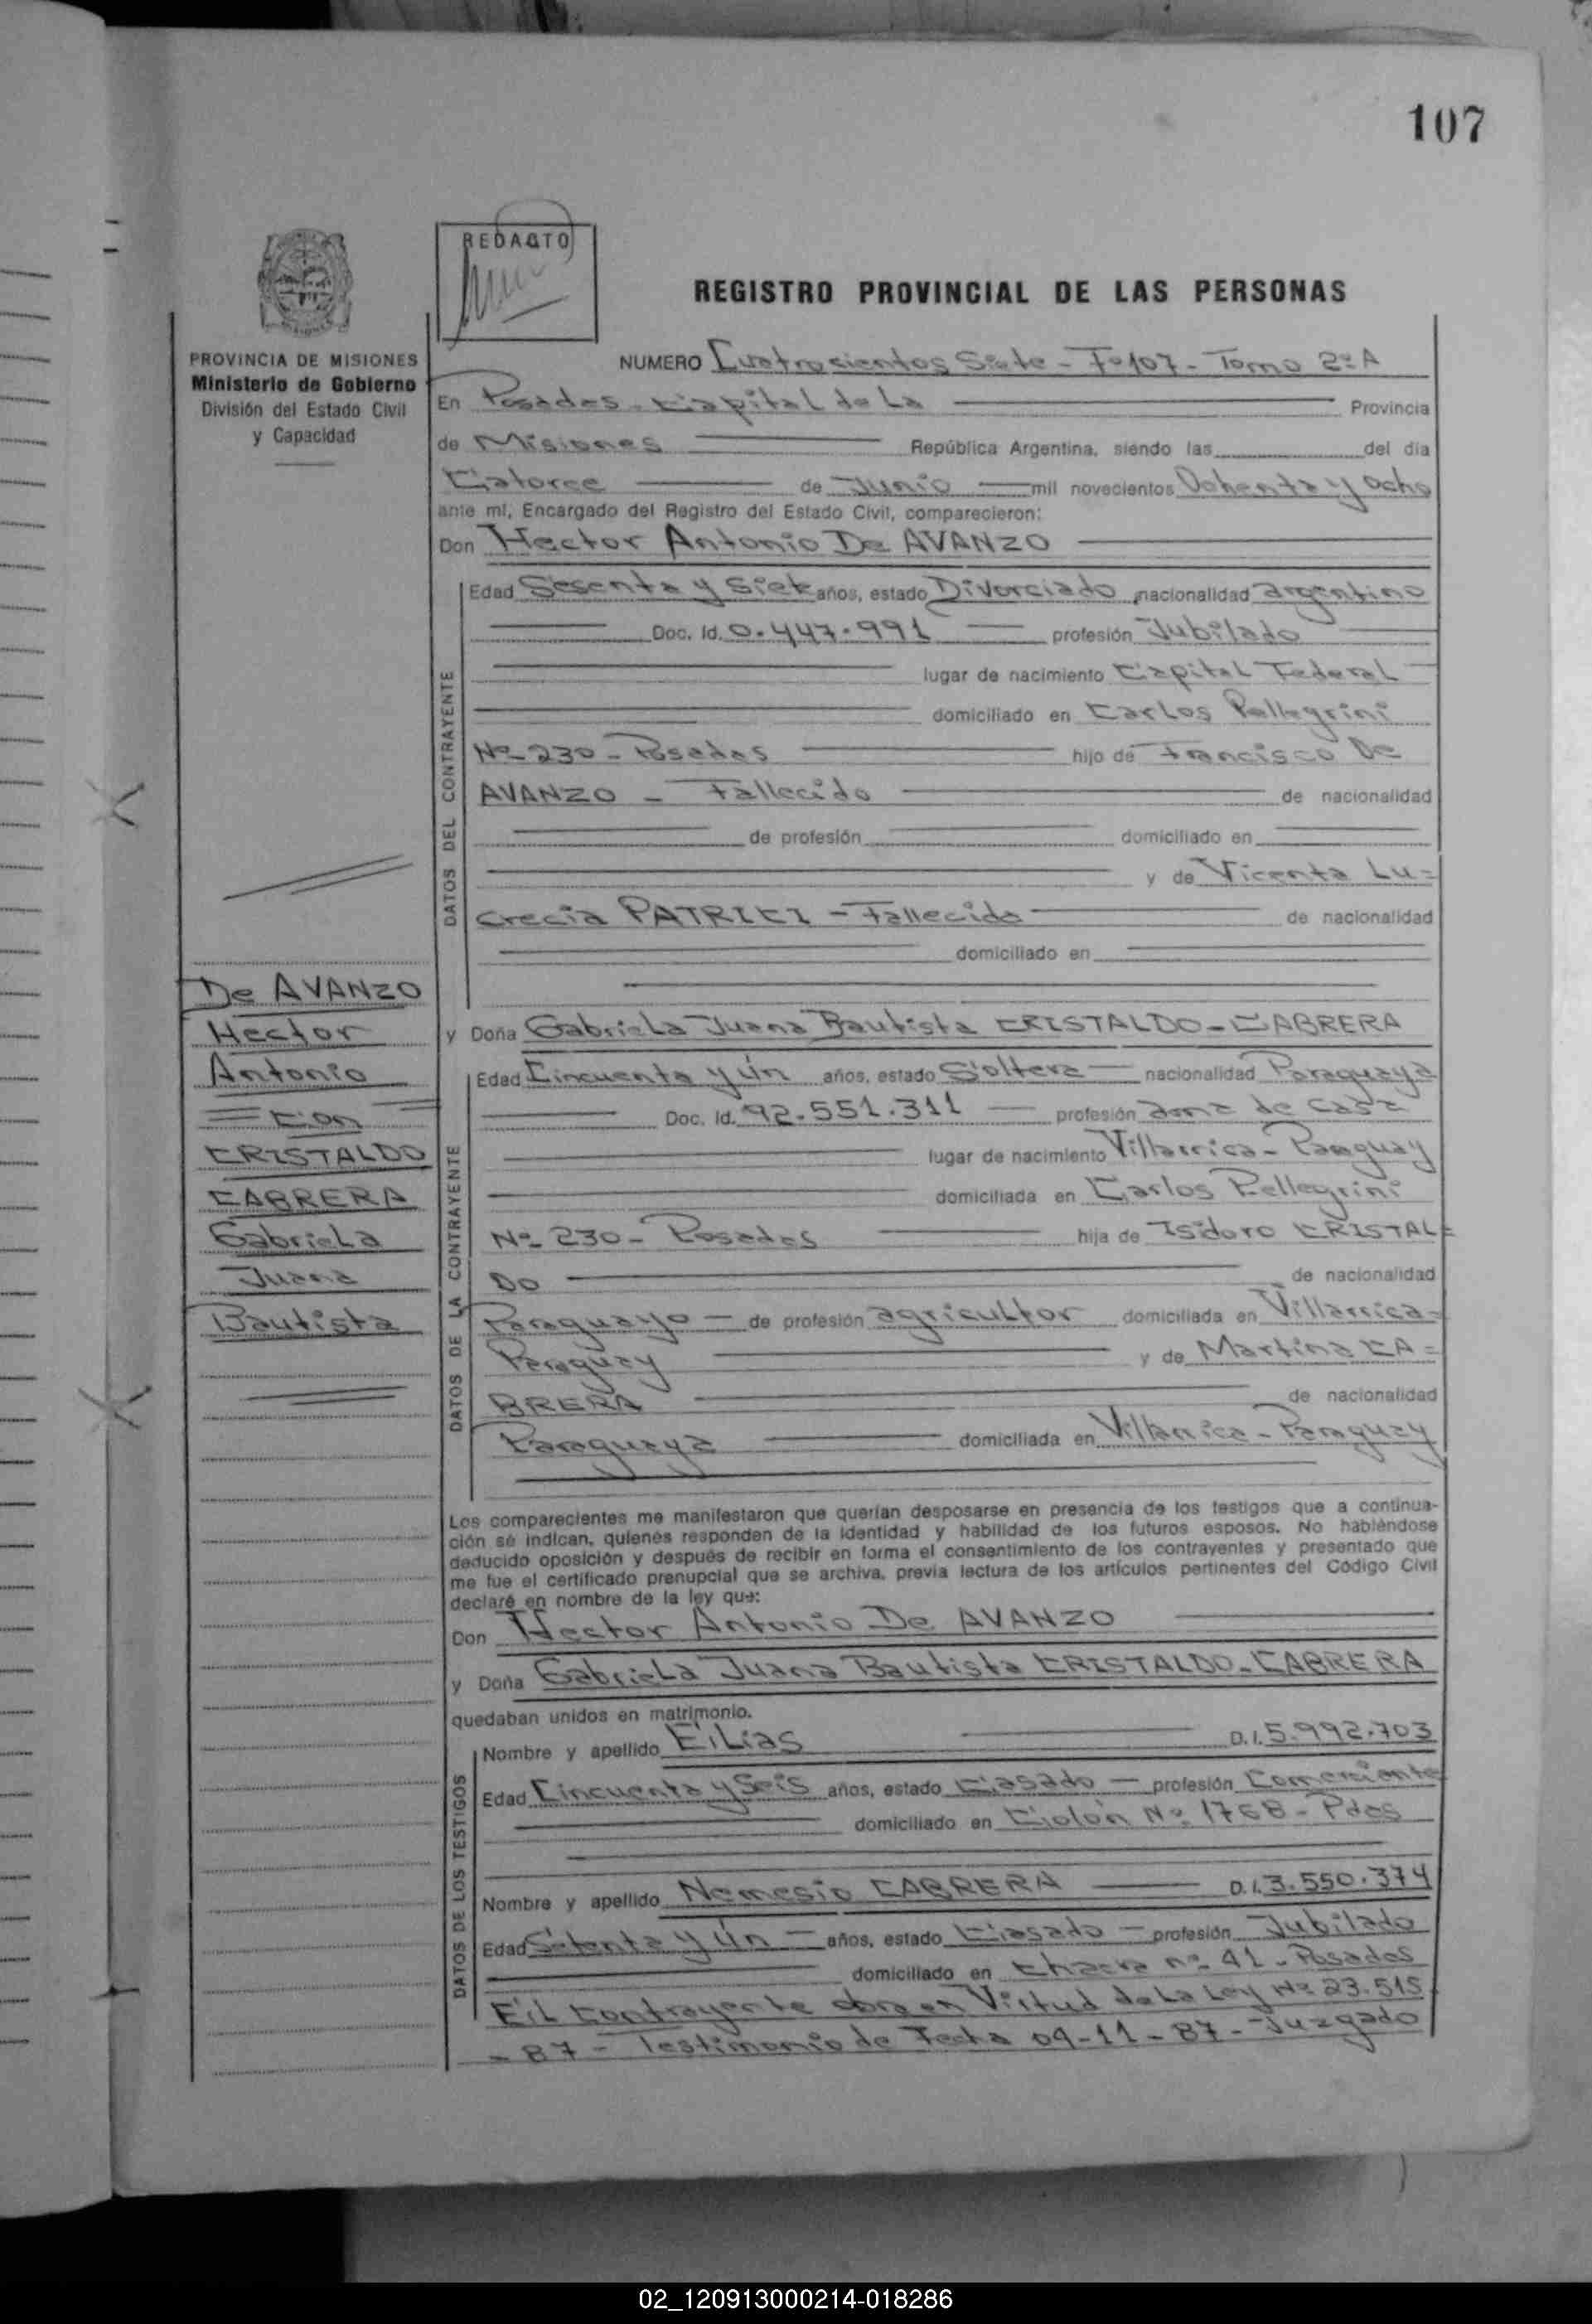 107
REDACTO
REGISTRO PROVINCIAL DE LAS PERSONAS
PROVINCIA DE MISIONES
Ministerio de Gobierno
División del Estado Civil
y Capacidad
NUMERO Cuatrosientos Siete - Fº 107 - Tomo 2º A
En Posadas - Capital de La Provincia
de Misiones República Argentina, siendo las del día
Catorce de Junio mil novecientos Ochenta y Ocho
ante mí, Encargado del Registro del Estado Civil, comparecieron:
Don Hector Antonio De AVANZO
DATOS DEL CONTRAYENTE
Edad Sesenta y Siete años, estado Divorciado nacionalidad argentino
Doc. Id. 0.447.991 profesión Jubilado
lugar de nacimiento Capital Federal
domiciliado en Carlos Pellegrini
Nº 230 - Posadas hijo de Francisco De
AVANZO - Fallecido de nacionalidad
de profesión domiciliado en
y de Vicenta Lu=
crecia PATRICI - Fallecida de nacionalidad
domiciliado en
De AVANZO
Hector
Antonio
= Con =
CRISTALDO
CABRERA
Gabriela
Juana
Bautista
y Doña Gabriela Juana Bautista CRISTALDO - CABRERA
DATOS DE LA CONTRAYENTE
Edad Cincuenta y Ún años, estado Soltera nacionalidad Paraguaya
Doc. Id. 92.551.311 profesión ama de casa
lugar de nacimiento Villarrica - Paraguay
domiciliada en Carlos Pellegrini
Nº 230 - Posadas hija de Isidoro CRISTAL=
DO de nacionalidad
Paraguayo - de profesión agricultor domiciliada en Villarrica -
Paraguay y de Martina CA=
BRERA de nacionalidad
Paraguaya domiciliada en Villarrica - Paraguay
Los comparecientes me manifestaron que querían desposarse en presencia de los testigos que a continua-
ción se indican, quienes responden de la identidad y habilidad de los futuros esposos. No habiéndose
deducido oposición y después de recibir en forma el consentimiento de los contrayentes y presentado que
me fue el certificado prenupcial que se archiva, previa lectura de los artículos pertinentes del Código Civil
declaré en nombre de la ley que:
Don Hector Antonio De AVANZO
y Doña Gabriela Juana Bautista CRISTALDO - CABRERA
quedaban unidos en matrimonio.
DATOS DE LOS TESTIGOS
Nombre y apellido Elias D.I. 5.992.703
Edad Cincuenta y Seis años, estado Casado - profesión Comerciante
domiciliado en Colón Nº 1768 - Pdas
Nombre y apellido Nemesio CABRERA D.I. 3.550.374
Edad Setenta y Ún años, estado Casado - profesión Jubilado
domiciliado en Chacra nº 41 - Posadas
El Contrayente obra en Virtud de La Ley Nº 23.515
- 87 - Testimonio de Fecha 09-11-87 - Juzgado
02_120913000214-018286